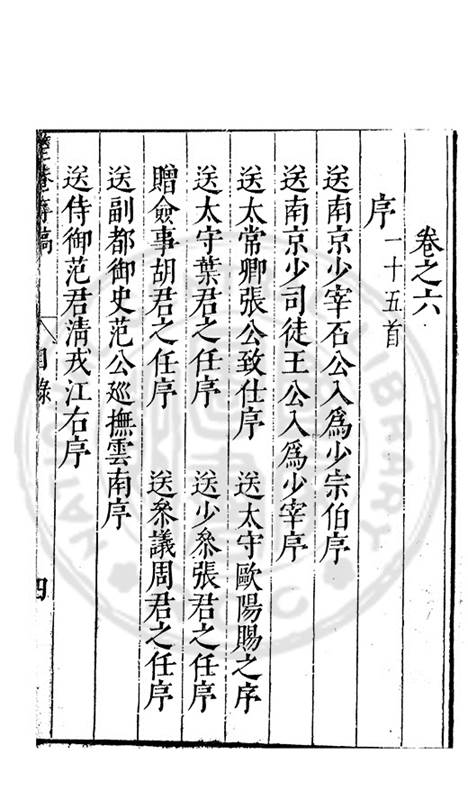 卷之六
序一十五首
送南京少宰石公入爲少宗伯序
送南京少司徒王公入爲少宰序
送太常卿張公致仕序 送太守歐陽賜之序
送太守葉君之任序 送少叅張君之任序
贈僉事胡君之任序 送叅議周君之任序
送副都御史范公廵撫雲南序
送侍御范君淸戎江右序
目錄
四